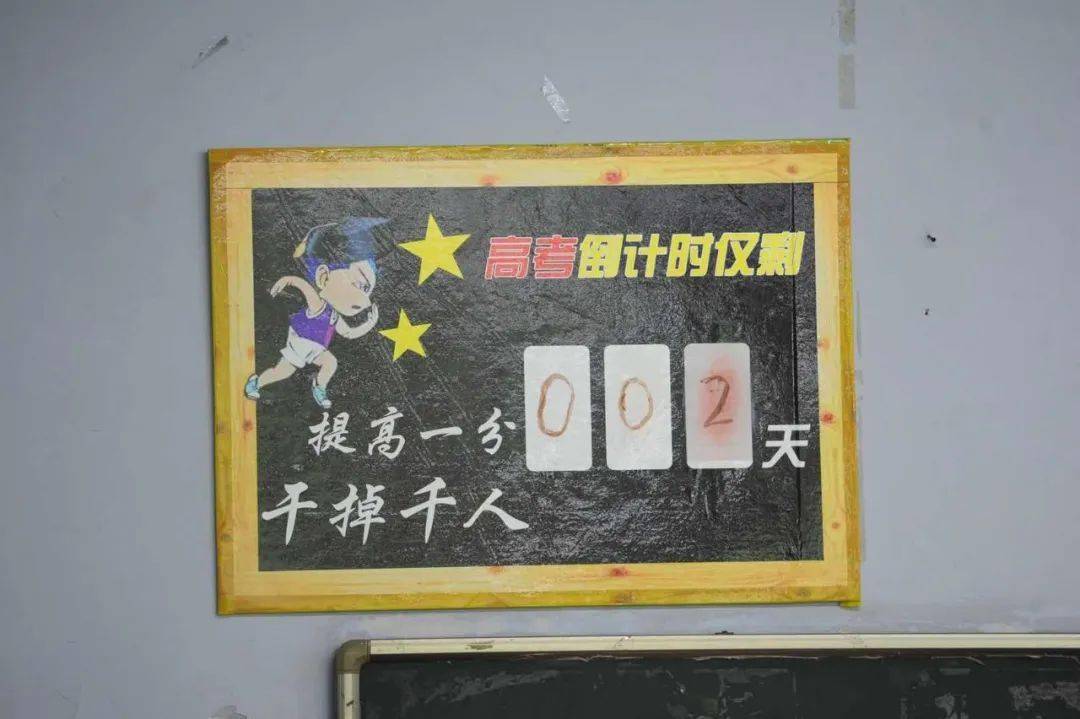 高考倒计时仅剩
002天
提高一分
干掉千人